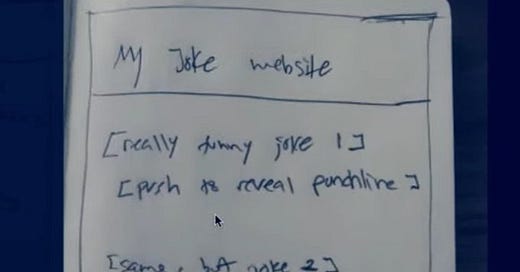 My Joke website
[really funny joke 1]
[push to reveal punchline]
[same, but joke 2]